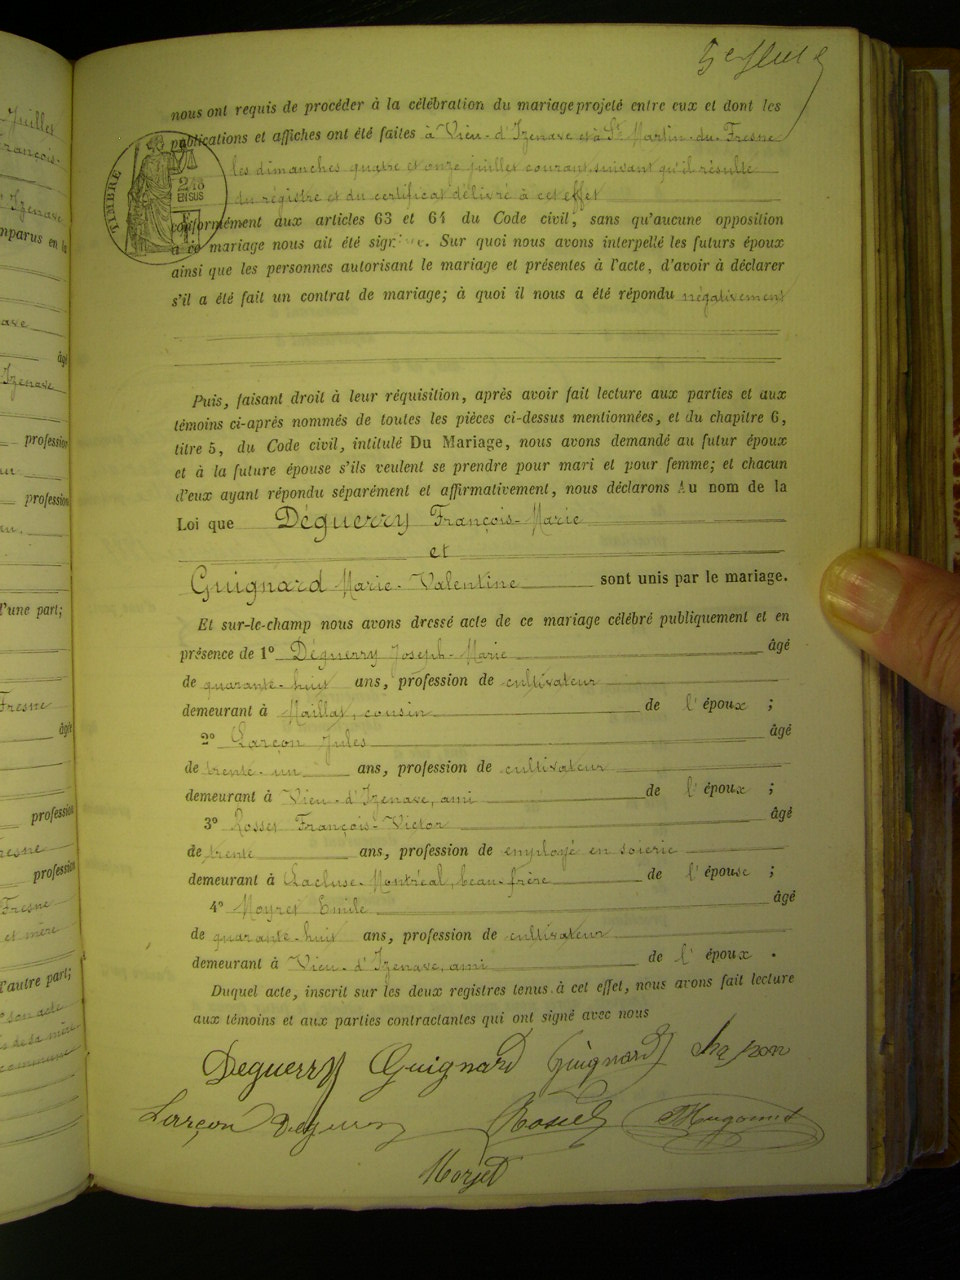 5e feuille
nous ont requis de procéder à la célébration du mariage projeté entre eux et dont les
publications et affiches ont été faites à Vieu-d'Izenave et à St Martin-du-Fresne
les dimanches quatre et onze juillet courant, suivant qu'il résulte
du registre et du certificat délivré à cet effet
conformément aux articles 63 et 64 du Code civil, sans qu'aucune opposition
à ce mariage nous ait été signifiée. Sur quoi nous avons interpellé les futurs époux
ainsi que les personnes autorisant le mariage et présentes à l'acte, d'avoir à déclarer
s'il a été fait un contrat de mariage; à quoi il nous a été répondu négativement
Puis, faisant droit à leur réquisition, après avoir fait lecture aux parties et aux
témoins ci-après nommés de toutes les pièces ci-dessus mentionnées, et du chapitre 6,
titre 5, du Code civil, intitulé Du Mariage, nous avons demandé au futur époux
et à la future épouse s'ils veulent se prendre pour mari et pour femme; et chacun
d'eux ayant répondu séparément et affirmativement, nous déclarons Au nom de la
Loi que Déguerry François-Marie
et
Guignard Marie-Valentine sont unis par le mariage.
Et sur-le-champ nous avons dressé acte de ce mariage célébré publiquement et en
présence de 1° Déguerry Joseph-Marie âgé
de quarante-huit ans, profession de cultivateur
demeurant à Maillat, cousin de l'époux ;
2° Larçon Jules âgé
de trente-un ans, profession de cultivateur
demeurant à Vieu-d'Izenave, ami de l'époux ;
3° Rosset François-Victor âgé
de trente ans, profession de employé en soierie
demeurant à Lacluse-Montréal, beau-frère de l'épouse ;
4° Moyret Emile âgé
de quarante-huit ans, profession de cultivateur
demeurant à Vieu-d'Izenave, ami de l'époux .
Duquel acte, inscrit sur les deux registres tenus à cet effet, nous avons fait lecture
aux témoins et aux parties contractantes qui ont signé avec nous
Deguerry Guignard Guignard
Larçon Deguerry Rosset
Moyret
TIMBRE
EN SUS
Juillet
François-
Izenave
comparus en la
âgé
Izenave
profession
profession
l'une part;
Fresne
âgé
profession
profession
Fresne
et mère
l'autre part;